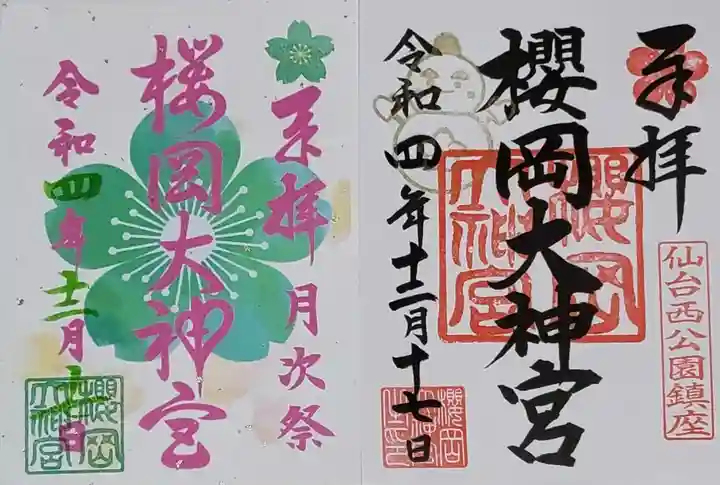 奉拝
仙台西公園鎮座
櫻岡大神宮
櫻岡大神宮
令和四年十二月十七日
奉拝 月次祭
桜岡大神宮
令和四年十二月
櫻岡大神宮